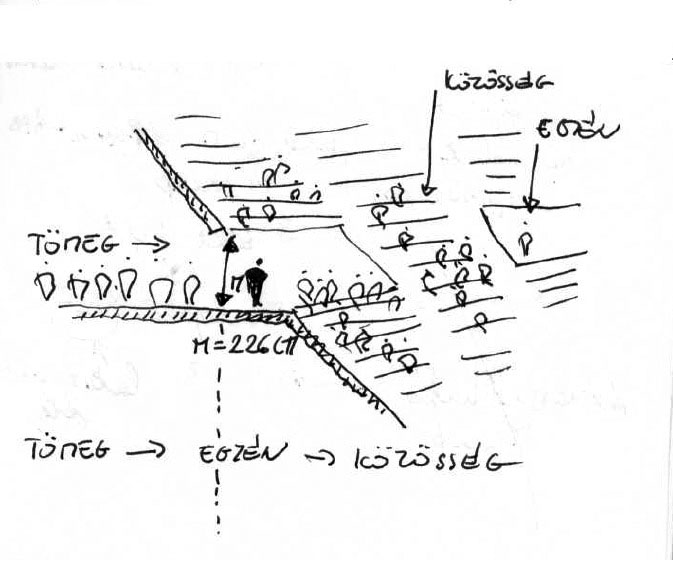 KÖZÖSSÉG
EGYÉN
TÖMEG →
M
M=226CM
TÖMEG → EGYÉN → KÖZÖSSÉG